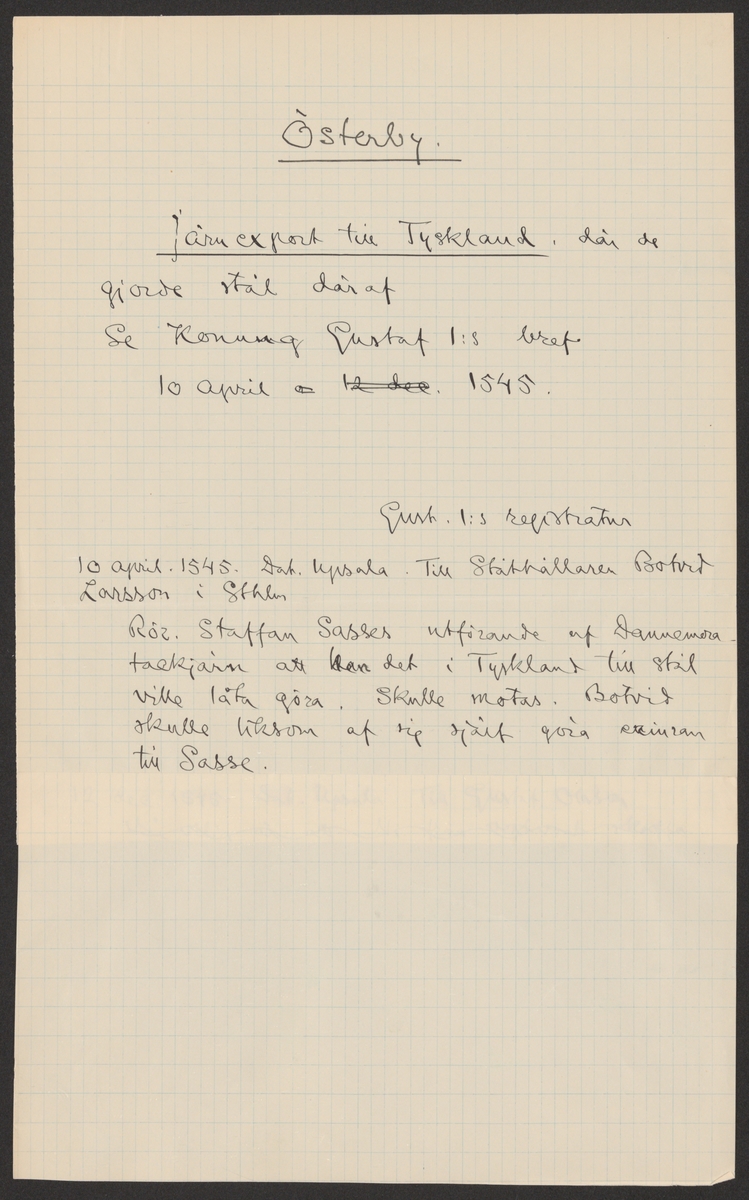 Österby.
Järnexport till Tyskland, där de
gjorde stål däraf
Se Konung Gustaf I:s bref
10 april o 12 dec. 1545.
Gust. I:s registratur
10 april. 1545. Dat. Upsala. Till Ståthållaren Botvid
Larsson i Sthlm
Rör. Staffan Sasses utförande af Dannemora-
tackjärn att han det i Tyskland till stål
ville låta göra. Skulle motas. Botvid
skulle liksom af sig själf göra erinran
till Sasse.